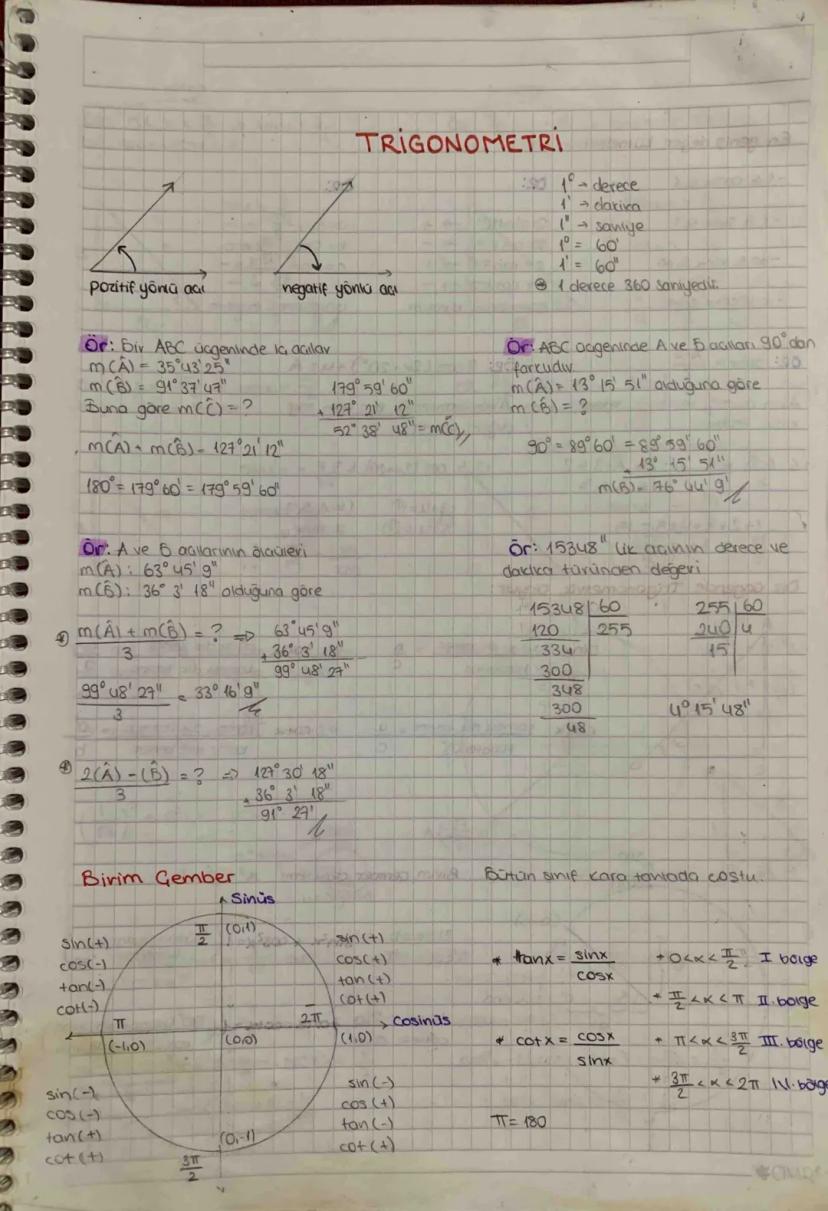 TRİGONOMETRİ
pozitif yönlü açı
negatif yönlü açı
1° → derece
1' → dakika
1" → saniye
1° = 60'
1' = 60"
1 derece 360 saniyedir.
Ör: Bir ABC üçgeninde iç açılar
m(Â) = 35°43'25"
m(B̂) = 91°37'47"
Buna göre m(Ĉ) = ?
m(Â) + m(B̂) = 127°21'12"
180° = 179°60' = 179°59'60"
179°59'60"
127° 21' 12"
52° 38' 48" = m(Ĉ)
Ör: ABC üçgeninde A ve B açıları 90°dan
farkudur
m(Â) = 13° 15' 51" olduğuna göre
m(B̂) = ?
90° = 89°60' = 89°59'60"
13° 15' 51"
m(B) = 76° 44' 9"
Ör: A ve B açılarının ölçüleri
m(Â): 63°45'9"
m(B̂): 36° 3' 18" olduğuna göre
m(Â) + m(B̂) / 3 = ? ⇒ 63°45'9"
+ 36° 3' 18"
99° 48' 27"
99° 48' 27" / 3 = 33° 16' 9"
2(Â) - (B̂) / 3 = ? ⇒ 127° 30' 18"
36° 3' 18"
91° 27'
Ör: 15348" lik açının derece ve
dakika türünden değeri
15348 | 60
120 | 255
334
300
348
300
48
255 | 60
240 | 4
15
4° 15' 48"
Birim Çember
Sinüs
π/2 (0,1)
sin(+)
cos(-)
tan(-)
cot(-)
sin(+)
cos(+)
tan(+)
cot(+)
π
2π
Cosinüs
(-1,0)
(0,0)
(1,0)
sin(-)
cos(-)
tan(+)
cot(+)
sin(-)
cos(+)
tan(-)
cot(+)
(0,-1)
3π/2
Bütün sınıf kara tahtada coştu.
* tanx = sinx / cosx
* cotx = cosx / sinx
π = 180
* 0 < x < π/2 I bölge
* π/2 < x < π II. bölge
* π < x < 3π/2 III. bölge
* 3π/2 < x < 2π IV. bölge